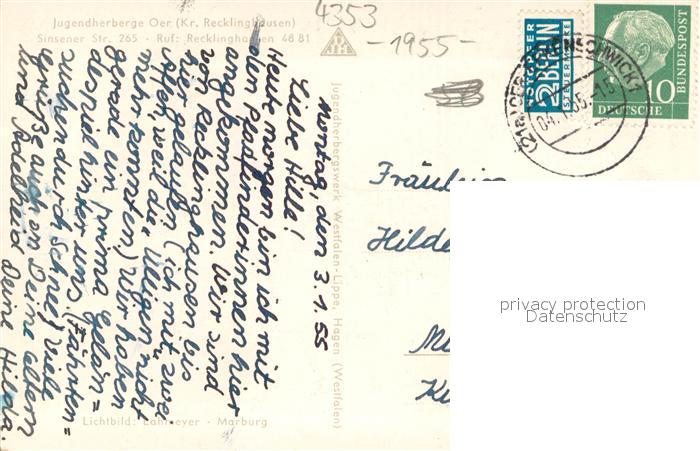 Jugendherberge Oer (Kr. Recklinghausen)
Sinsener Str. 265 · Ruf: Recklinghausen 48 81
4353
-1955-
NOTOPFER
2 BERLIN
STEUERMARKE
DEUTSCHE
BUNDESPOST
10
(21a) OER-ERKENSCHWICK
04.1.55
Montag, den 3.1.55
Liebe Hilde!
Heute morgen bin ich mit
den Pfadfinderinnen hier
angekommen. Wir sind
von Recklinghausen bis
hier gelaufen (ich mit zwei
weil die übrigen nicht
mehr konnten.) Wir haben
gerade ein prima Gelän=
despiel hinter uns (Fährten=
suchen durch Schnee) Viele
Grüße auch an Deine Eltern
und Deine Hilda.
Jugendherbergswerk Westfalen-Lippe, Hagen (Westfalen)
Fräulein
Hilde
Lichtbild: Lahmeyer · Marburg
privacy protection
Datenschutz